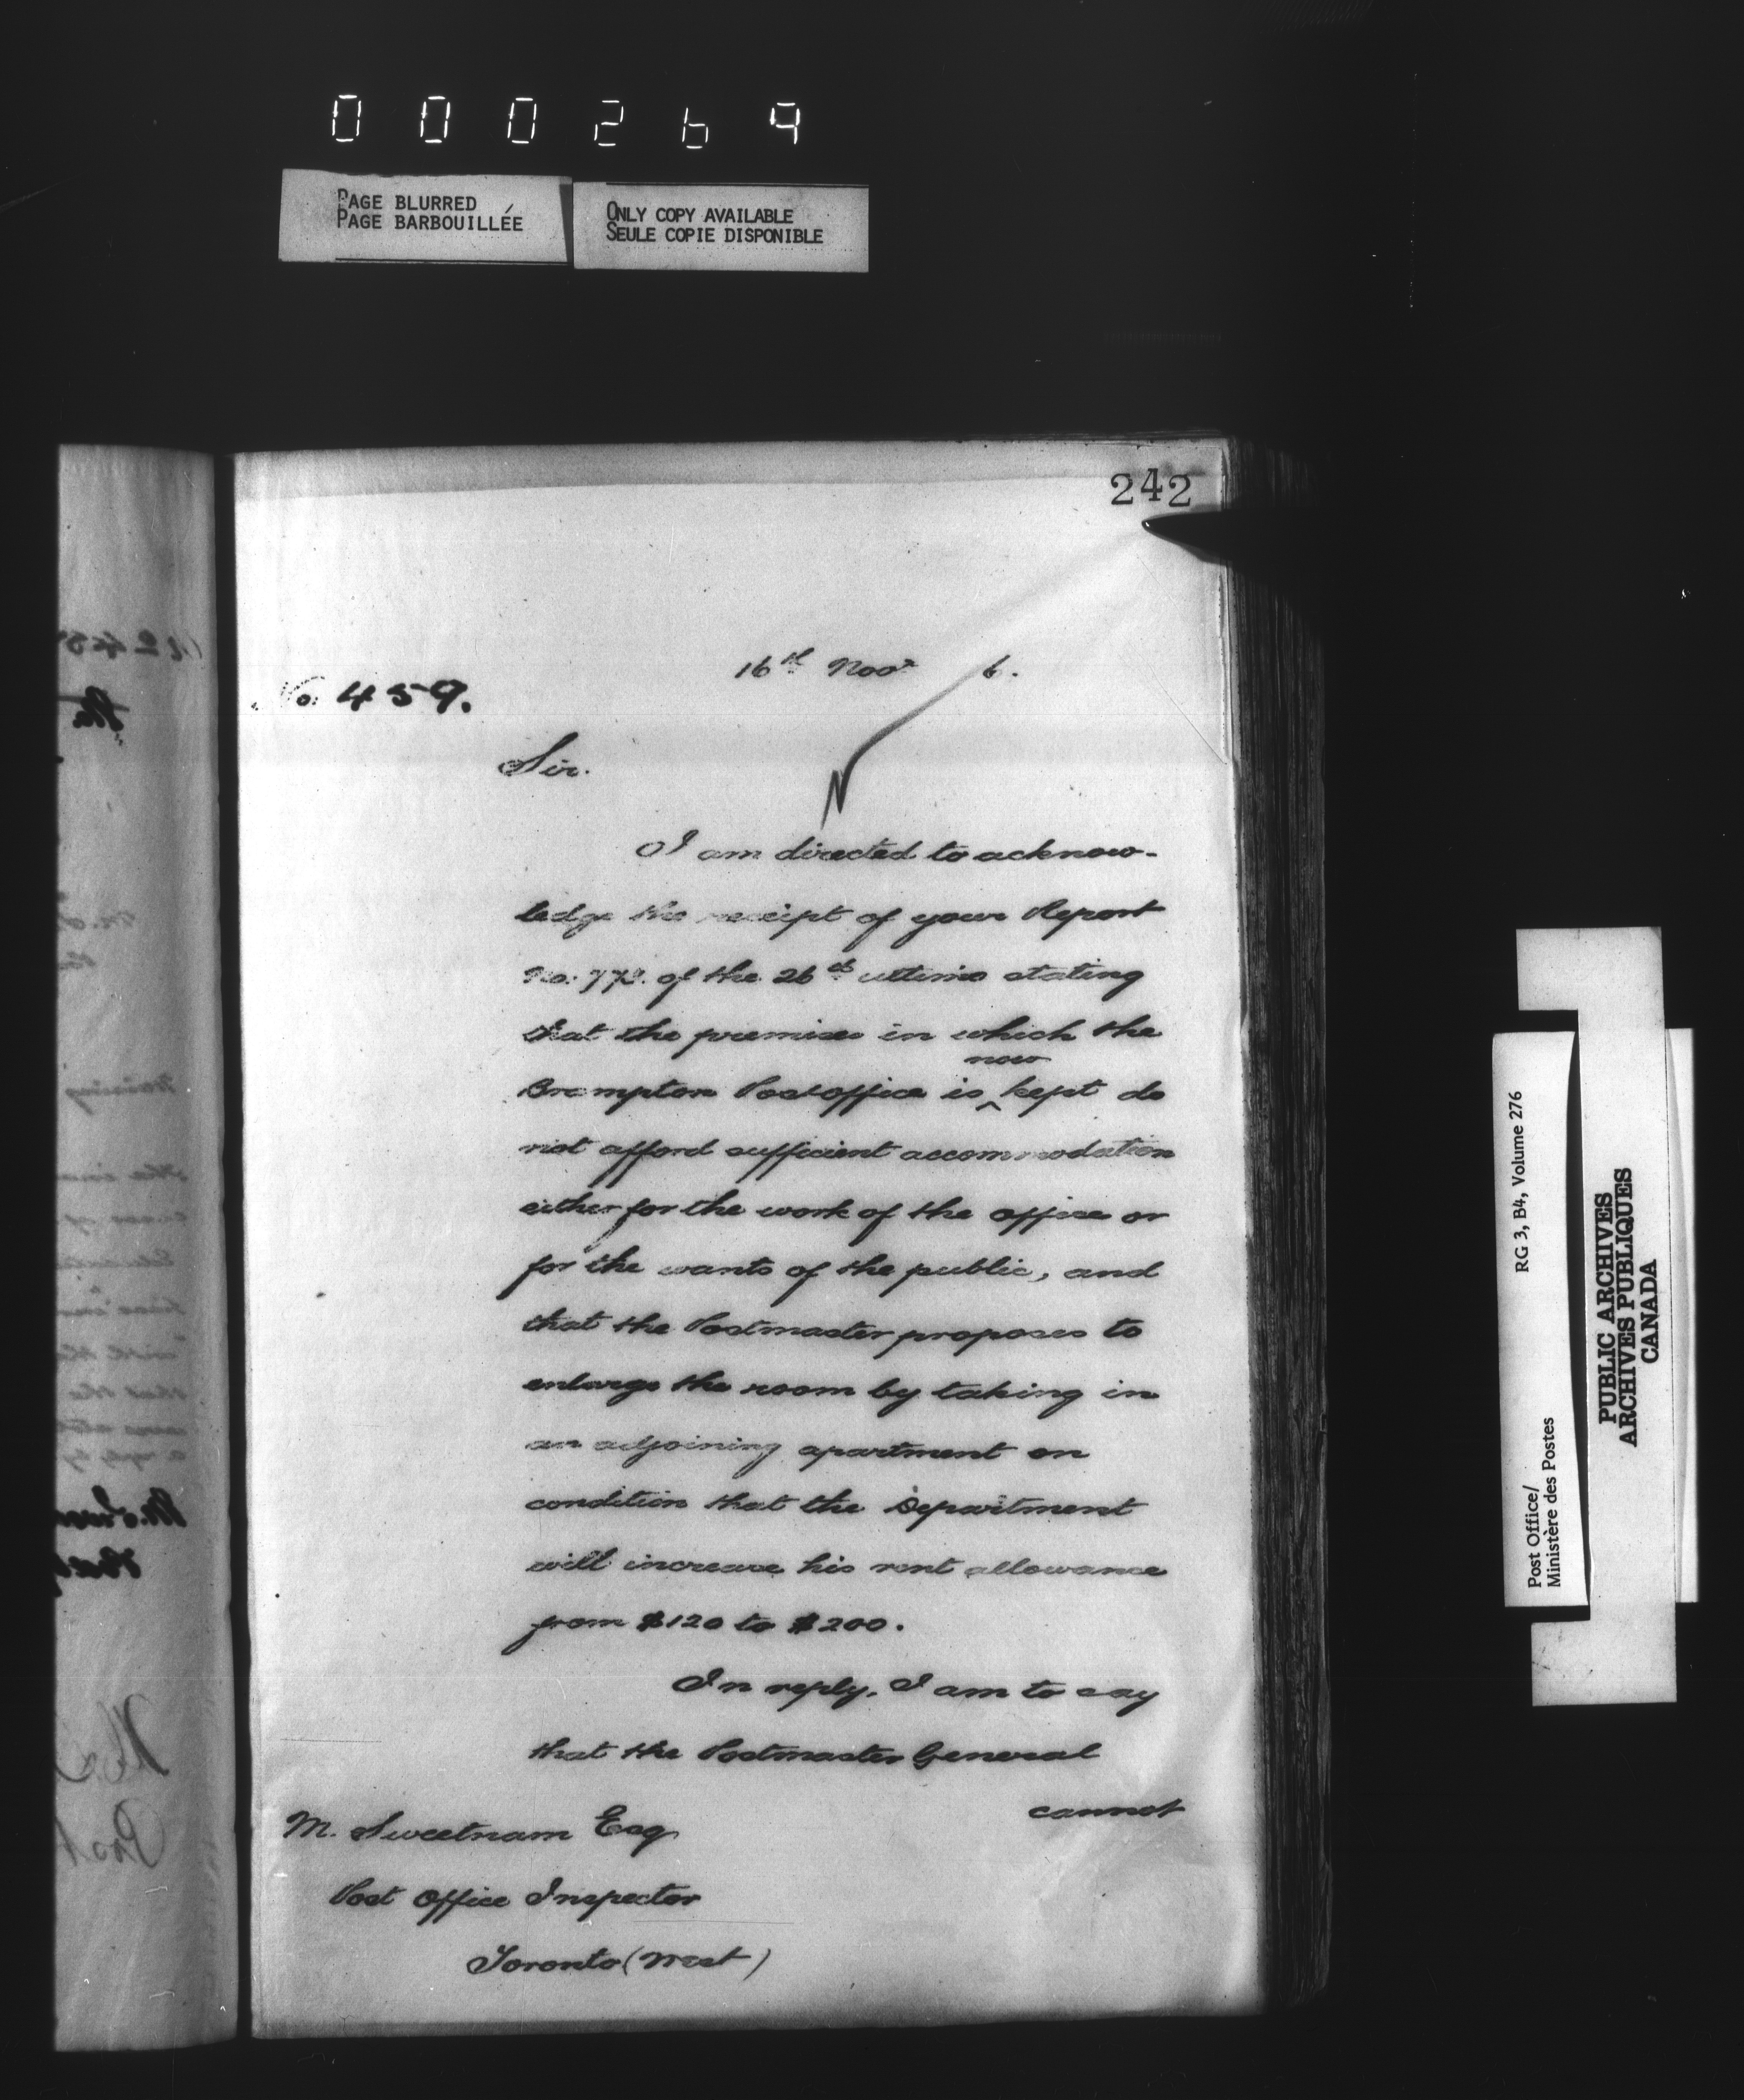 000269
PAGE BLURRED
PAGE BARBOUILLÉE
ONLY COPY AVAILABLE
SEULE COPIE DISPONIBLE
242
16th Novr 6.
No. 459.
Sir.
I am directed to acknow-
ledge the receipt of your Report
No: of the 26th ultimo stating
that the premises in which the
now
Brampton Post office is ^ kept do
not afford sufficient accommodation
either for the work of the office or
for the wants of the public, and
that the Postmaster proposes to
enlarge the room by taking in
an adjoining apartment on
condition that the Department
will increase his rent allowance
from $120 to $200.
In reply, I am to say
that the Postmaster General
cannot
M. Sweetnam Esq
Post Office Inspector
Toronto (West)
Post Office/
Ministère des Postes
RG 3, B4, Volume 276
PUBLIC ARCHIVES
ARCHIVES PUBLIQUES
CANADA